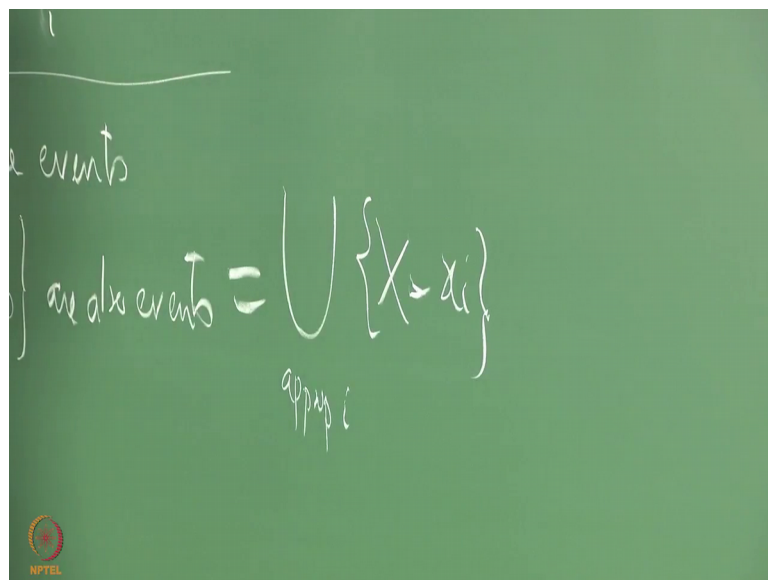 events
} are also events = ⋃ {X = xi}
approp i
NPTEL